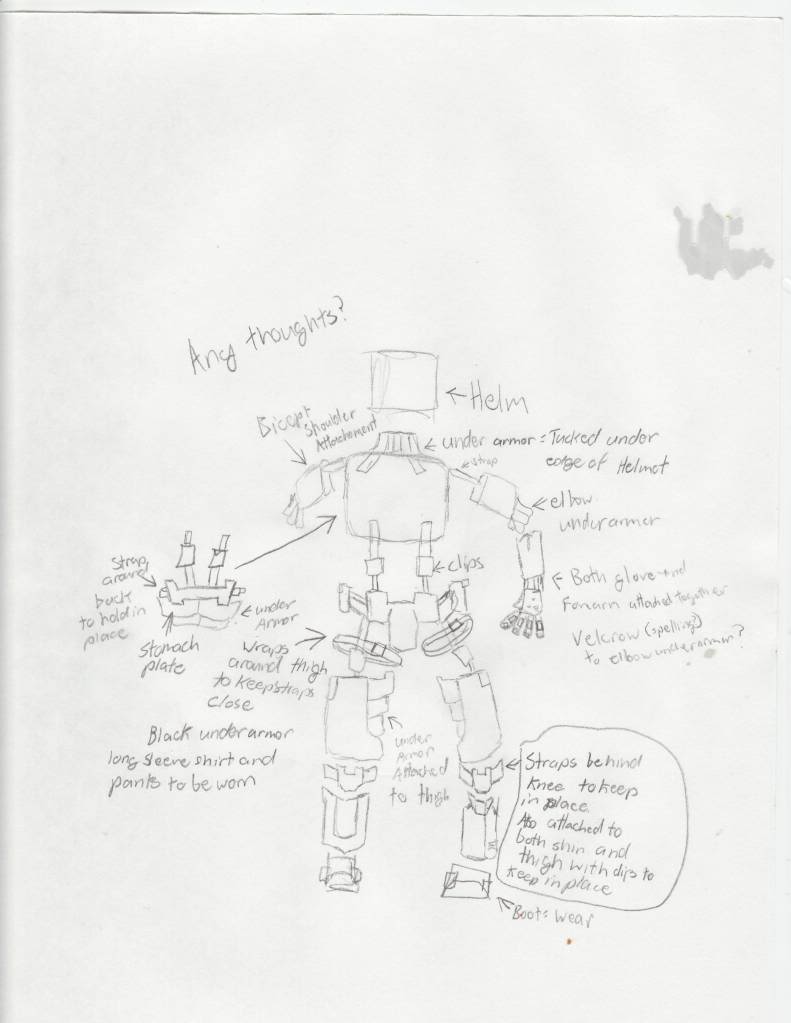 Any thoughts?
Helm
Bicept
Shoulder
Attachement
under armor = Tucked under
edge of Helmet
strap
elbow
underarmor
Strap
around
back
to hold in
place
under
Armor
Stomach
plate
clips
Both glove and
Forearm attached together
Velcrow (spelling?)
to elbow underarmor?
Wraps
around thigh
to keep straps
close
Black underarmor
long sleeve shirt and
pants to be worn
under
Armor
Attached
to thigh
Straps behind
Knee to keep
in place.
Also attached to
both shin and
thigh with clips to
keep in place
Boots wear